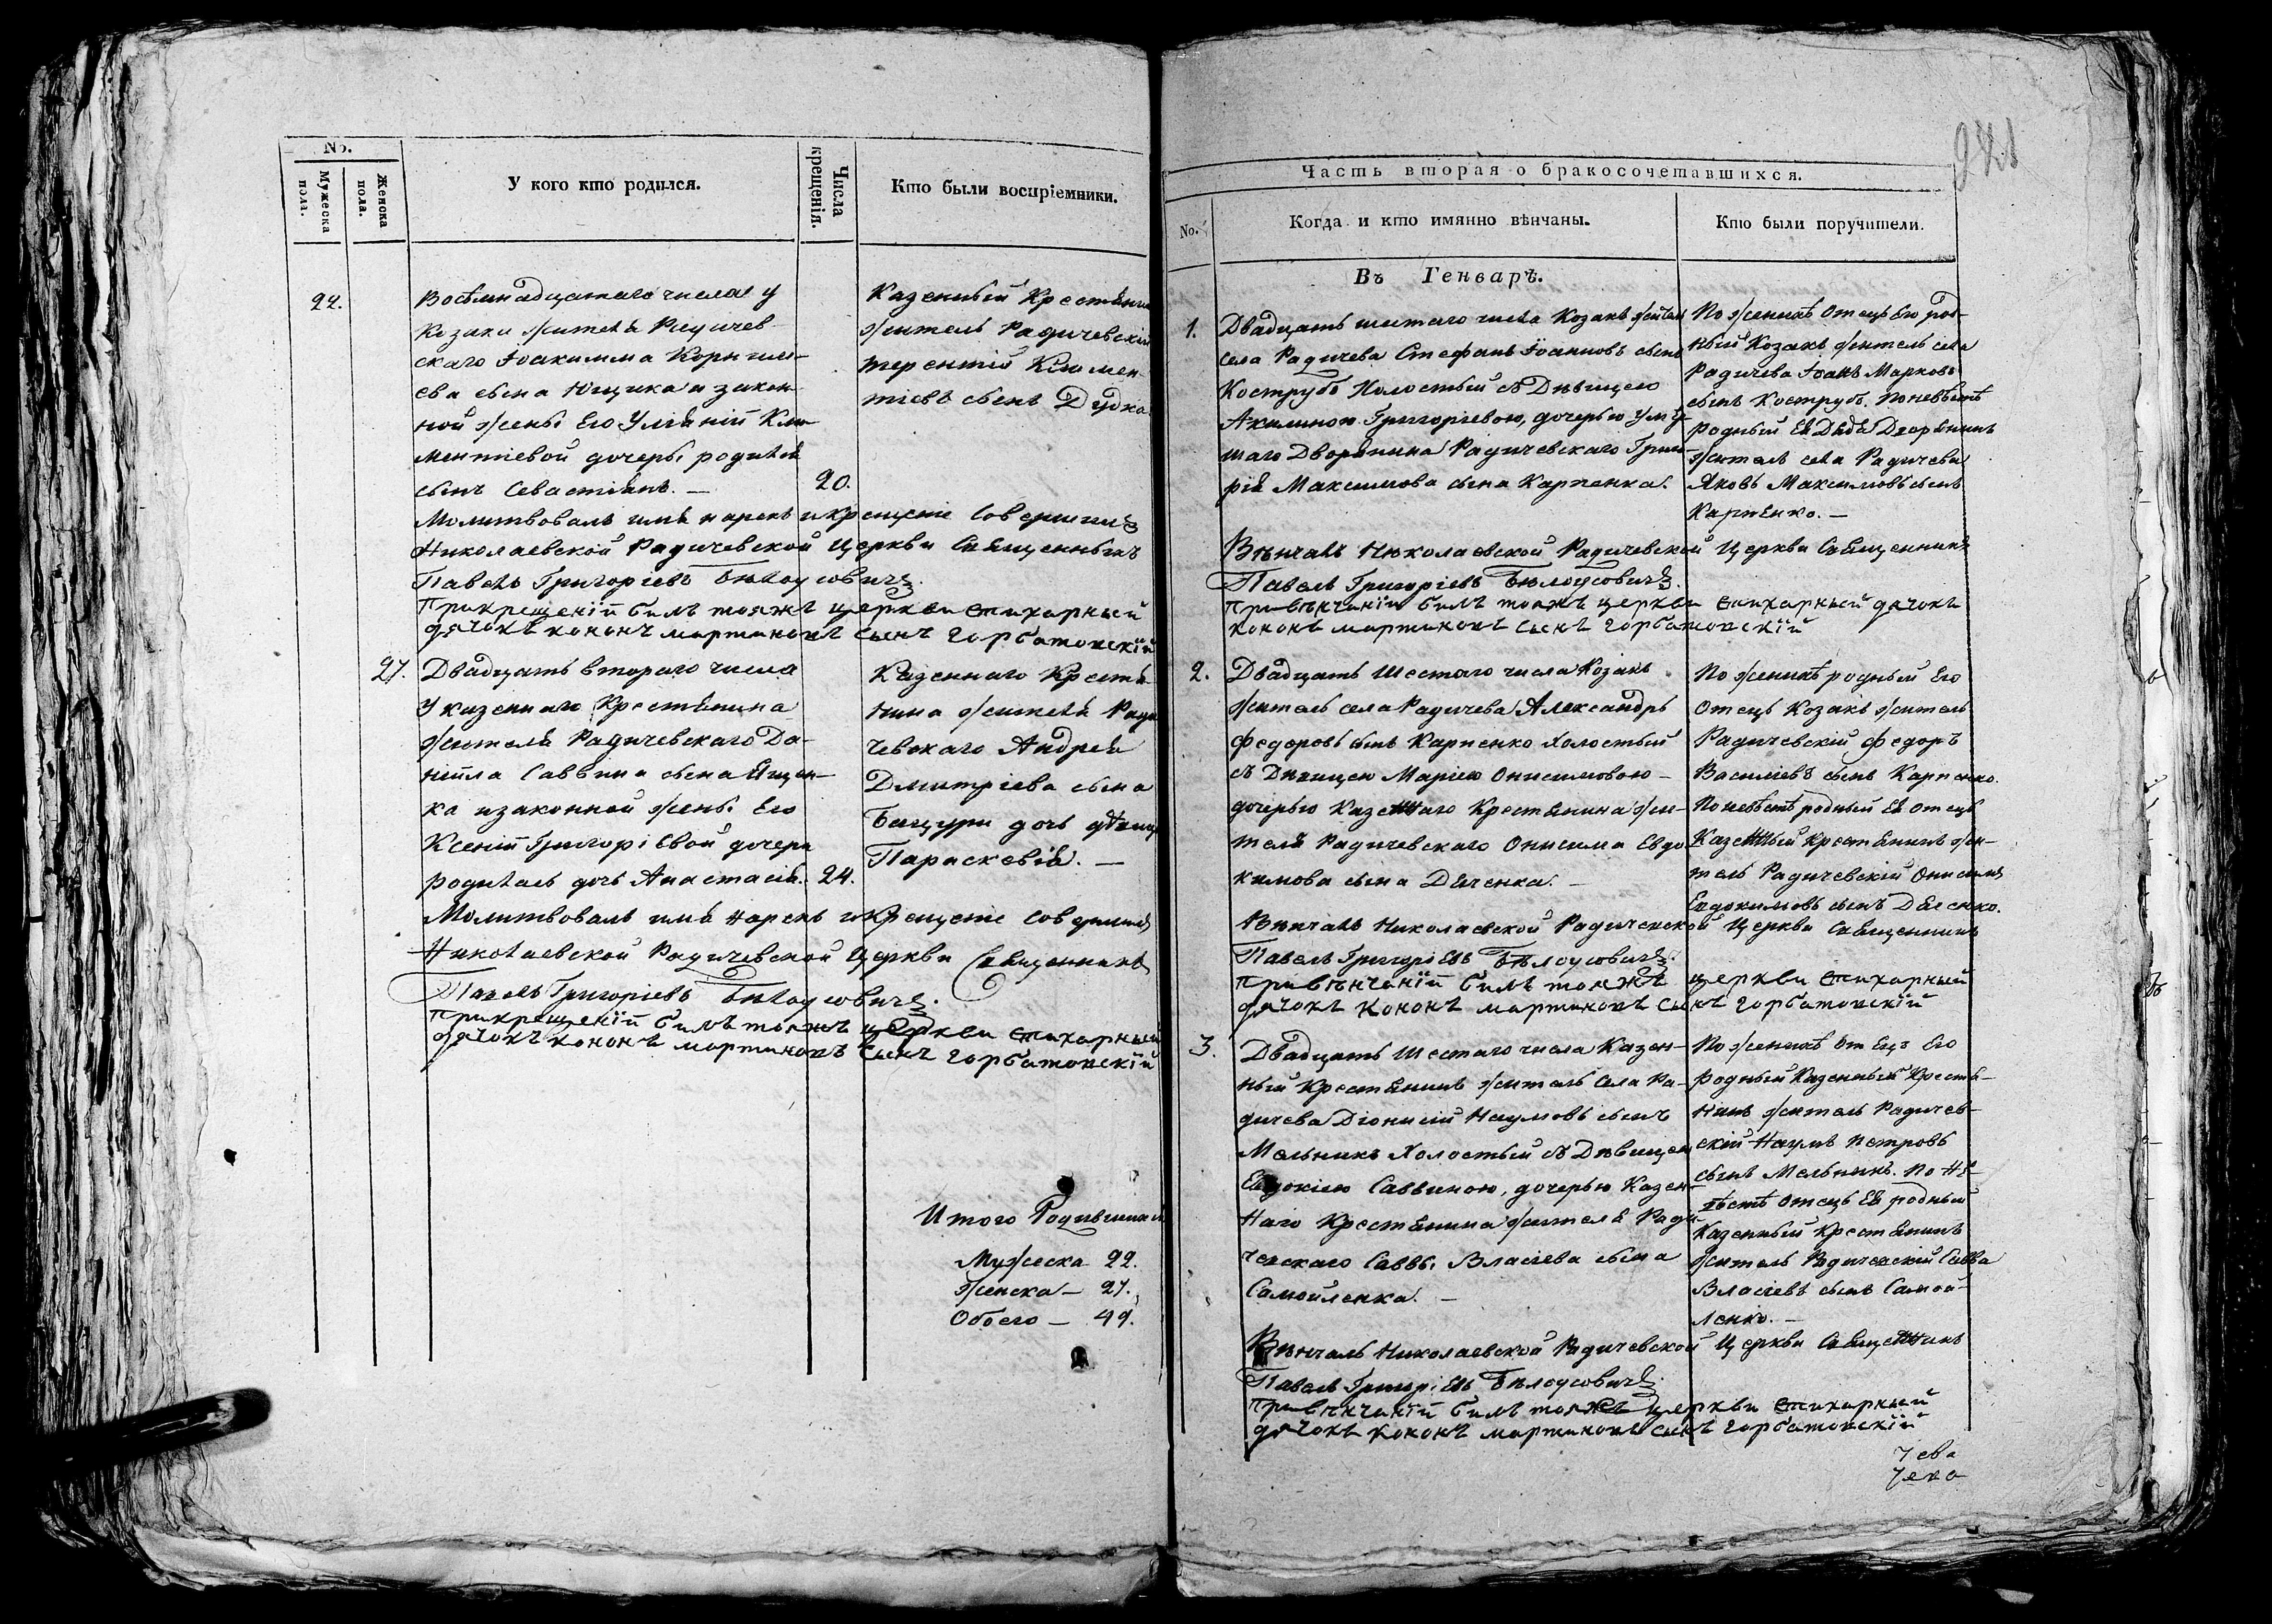 No.
Мужеска пола.
Женска пола.
У кого кто родился.
Числа крещенія.
Кто были воспріемники.
22.
Восѣмнадцатаго числа у
Козака жителя Радичев-
скаго Іоакимма Корнили-
ева сына Ющика и закон-
ной жены Его Уліяніи Кли-
ментіевой дочеры родился
сынъ Севастіянъ. —
20.
Казенный Крестянин
житель Радичевскій
терентій Климен
тіевъ сынъ Дудка
Молитвовалъ имя нарекъ и крещеніе совершилъ
Николаевской Радичевской Церкви Священникъ
Павелъ Григоріевъ Бѣлоусовичъ.
Прикрещеніи билъ тояжъ церкви стихарный
дячокъ кононъ мартиновъ сынъ горбатовскій
27.
Двадцать втораго числа
У казеннаго Крестянина
жителя Радичевскаго Да-
ніила Саввина сына Яцен-
ка и законной жены Его
Ксеніи Григоріевой дочери
родилась дочь Анастасія.
24.
Казеннаго Крестя-
нина жителя Ради
чевскаго Андрея
Дмитріева сына
Бацури дочь дѣвица
Параскевія. —
Молитвовалъ имя нарекъ и Крещеніе совершилъ
Николаевской Радичевской Церкви Священникъ
Павелъ Григоріевъ Бѣлоусовичъ.
Прикрещеніи билъ тояжъ церкви стихарный
дячокъ кононъ мартиновъ сынъ горбатовскій
Итого Родившихся
Мужеска 22.
Женска — 27.
Обоего — 49.
241
Часть вторая о бракосочетавшихся.
No.
Когда и кто имянно вѣнчаны.
Кто были поручители.
Въ Генварѣ.
1.
Двадцать шестаго числа Козакъ житель
села Радичева Стефанъ Іоанновъ сынъ
Кострубъ Холостый съ Дѣвицею
Акилиною Григоріевою, дочерью умер
шаго Дворянина Радичевскаго Григо
рія Максимова сына Карпенка.
По женихѣ Отецъ Его род-
ный Козакъ житель села
Радичева Іоанъ Марковъ
сынъ Кострубъ. По невѣстѣ
родный Ея Дядя Дворянинъ
житель села Радичева
Яковъ Максимовъ сынъ
Карпенко. —
Вѣнчалъ Николаевской Радичевской Церкви Священникъ
Павелъ Григоріевъ Бѣлоусовичъ.
Привѣнчаніи билъ тояжъ церкви стихарный дячокъ
кононъ мартиновъ сынъ горбатовскій
2.
Двадцать Шестаго числа Козакъ
житель села Радичева Александръ
Федоровъ сынъ Карпенко Холостый
съ Дѣвицею Маріею Онисимовою —
дочерью Казеннаго Крестянина жи-
теля Радичевскаго Онисима Евдо
кимова сына Дяченка. —
По женихѣ родный Его
Отецъ Козакъ житель
Радичевскій Федоръ
Василіевъ сынъ Карпенко.
По невѣстѣ родный Ея Отецъ
Казенный Крестянинъ жи-
тель Радичевскій Онисимъ
Евдокимовъ сынъ Дяченко.
Вѣнчалъ Николаевской Радичевской Церкви Священникъ
Павелъ Григоріевъ Бѣлоусовичъ.
Привѣнчаніи билъ тояжъ церкви стихарный
дячокъ кононъ мартиновъ сынъ горбатовскій
3.
Двадцать Шестаго числа Казен-
ный Крестянинъ житель Села Ра-
дичева Діонисій Наумовъ сынъ
Мельникъ Холостый съ Дѣвицею
Евдокіею Саввиною, дочерью Казен-
наго Крестянина жителя Ради-
чевскаго Саввы Власіева сына
Самойленка. —
По женихѣ Отецъ Его
родный Казенный Крестя-
нинъ житель Радичев-
скій Наумъ Петровъ
сынъ Мельникъ. По не-
вѣстѣ Отецъ Ея родный
Казенный Крестянинъ
житель Радичевскій Савва
Власіевъ сынъ Самой-
ленко. —
Вѣнчалъ Николаевской Радичевской Церкви Священникъ
Павелъ Григоріевъ Бѣлоусовичъ.
Привѣнчаніи билъ тояжъ церкви стихарный
дячокъ кононъ мартиновъ сынъ горбатовскій